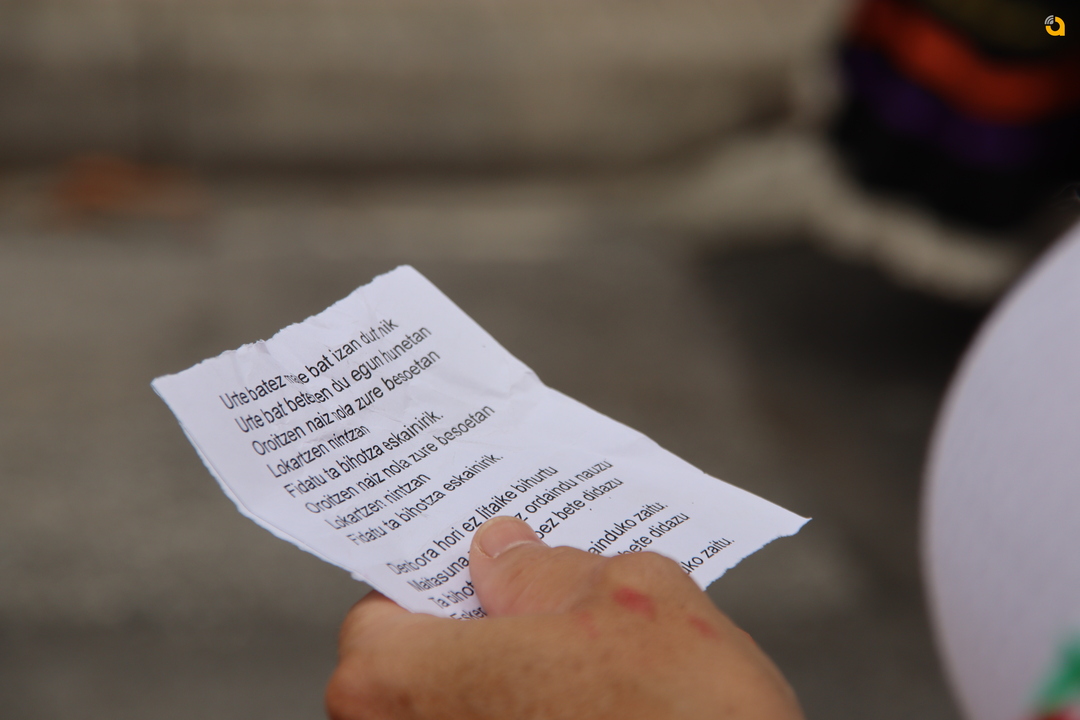 Urte batez bat izan dutnik
Urte bat beteen du egun hunetan
Oroitzen naiz nola zure besoetan
Lokartzen nintzan
Fidatu ta bihotza eskainirik.
Oroitzen naiz nola zure besoetan
Lokartzen nintzan
Fidatu ta bihotza eskainirik.
Denbora hori ez litaike bihurtu
Maitasuna ordaindu nauzu
Ta bete didazu
zaitu.
bete didazu
zaitu.